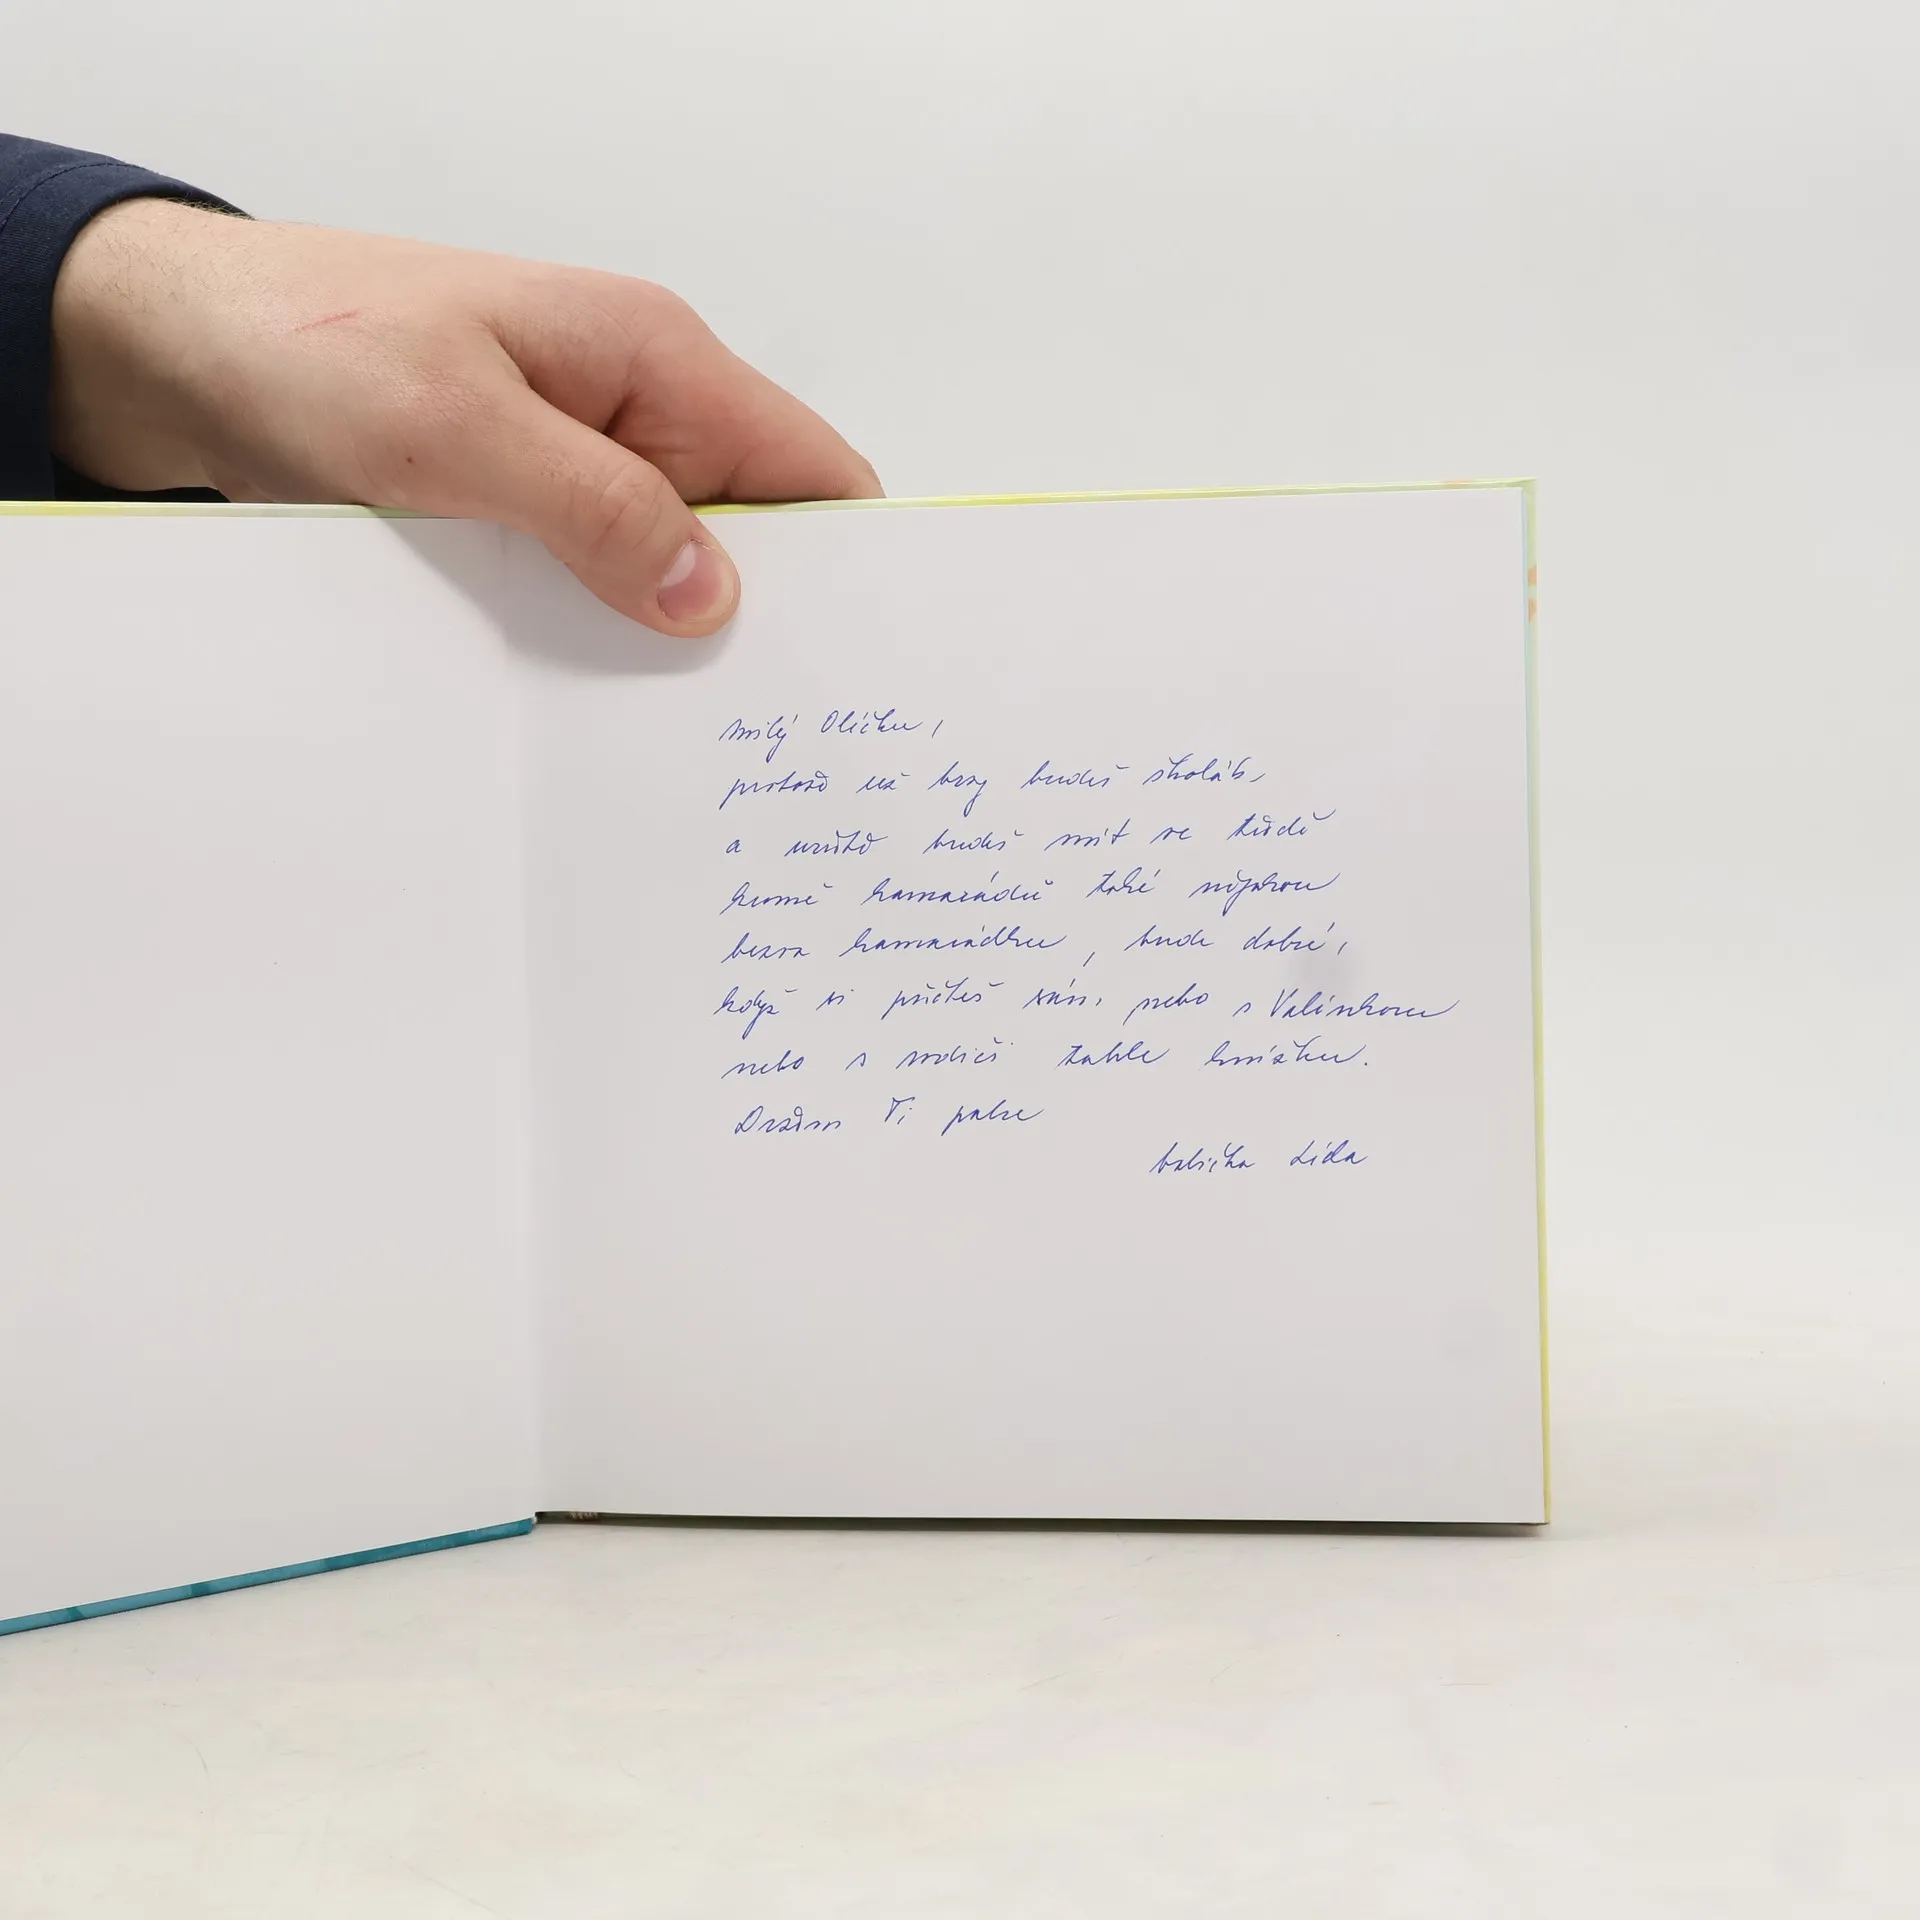 Milý Olíčku,
protože už brzy budeš školák,
a určitě budeš mít ve třídě
kromě kamarádů také nějakou
bezva kamarádku, bude dobré,
když si přečteš sám, nebo s Valinkou
nebo s rodiči tuhle knížku.
Držím Ti palce
babička Lída